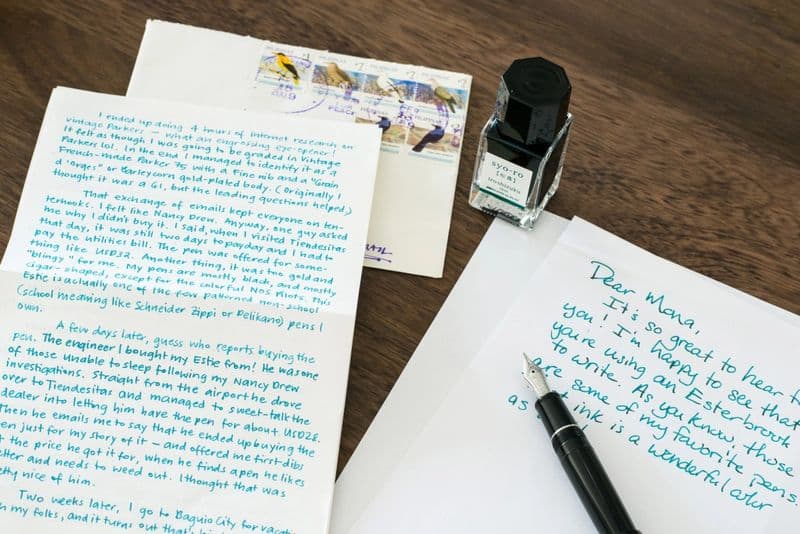 I ended up doing 4 hours of Internet research on
vintage Parkers — what an engrossing eye-opener!
It felt as though I was going to be graded in Vintage
Parkers 101. In the end I managed to identify it as a
French-made Parker 75 with a Fine nib and a "Grain
d'orges" or barleycorn gold-plated body. (Originally I
thought it was a 61, but the leading questions helped.)
That exchange of emails kept everyone on ten-
terhooks. I felt like Nancy Drew. Anyway, one guy asked
me why I didn't buy it. I said, when I visited Tiendesitas
that day, it was still two days to payday and I had to
pay the utilities bill. The pen was offered for some-
thing like USD32. Another thing, it was too gold and
"blingy" for me. My pens are mostly black, and mostly
cigar-shaped, except for the colorful NOS Pilots. This
Estie is actually one of the few patterned non-school
(school meaning like Schneider Zippi or Pelikano) pens I
own.
A few days later, guess who reports buying the
pen. The engineer I bought my Estie from! He was one
of those unable to sleep following my Nancy Drew
investigations. Straight from the airport he drove
over to Tiendesitas and managed to sweet-talk the
dealer into letting him have the pen for about USD28.
Then he emails me to say that he ended up buying the
pen just for my story of it — and offered me first dibs
at the price he got it for, when he finds a pen he likes
better and needs to weed out. I thought that was
pretty nice of him.
Two weeks later, I go to Baguio City for
my folks, and it turns out that
syo-ro
iroshizuku
Dear Mona,
It's so great to hear
you! I'm happy to see that
you're using an Esterbrook
to write. As you know, those
are some of my favorite pens.
as ink is a wonderful color